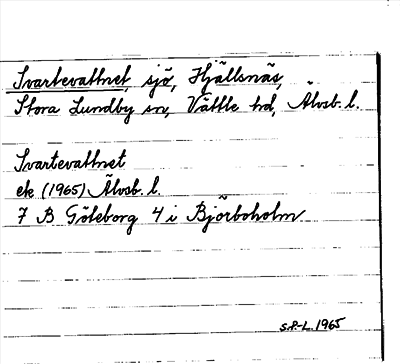 Svartevattnet, sjö, Hjällsnäs,
Stora Lundby sn, Vättle hd, Älvsb. l.
Svartevattnet
ek (1965) Älvsb. l.
7 B Göteborg 4 i Björboholm
S.P-L. 1965